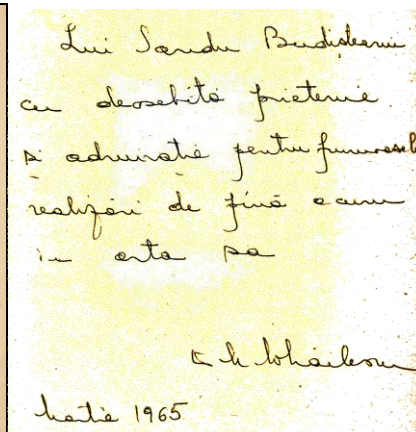 Lui Sandu Budișteanu
cu deosebită prietenie
și admirație pentru frumoasele
realizări de până acum
în arta sa
Martie 1965